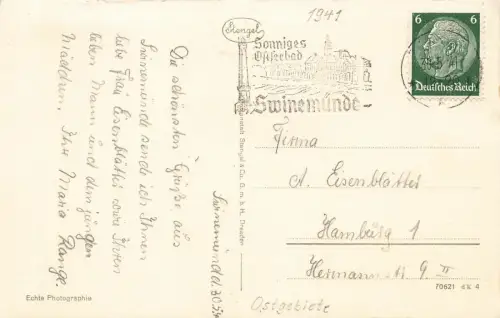 1941
Stengel
Sonniges
Ostseebad
Swinemünde
6 6
Deutsches Reich
Die schönsten Grüße aus
Swinemünde sende ich Ihnen
liebe Frau Eisenblätter sowie Ihrem
lieben Mann und dem jungen
Mädchen. Ihre Maria Range.
Swinemünd. d. 30.5.
Firma
A. Eisenblätter
Hamburg 1
Hermannstr. 9 II
Ostgebiete
Echte Photographie
70621 4
Stengel & Co. G. m. b. H. Dresden